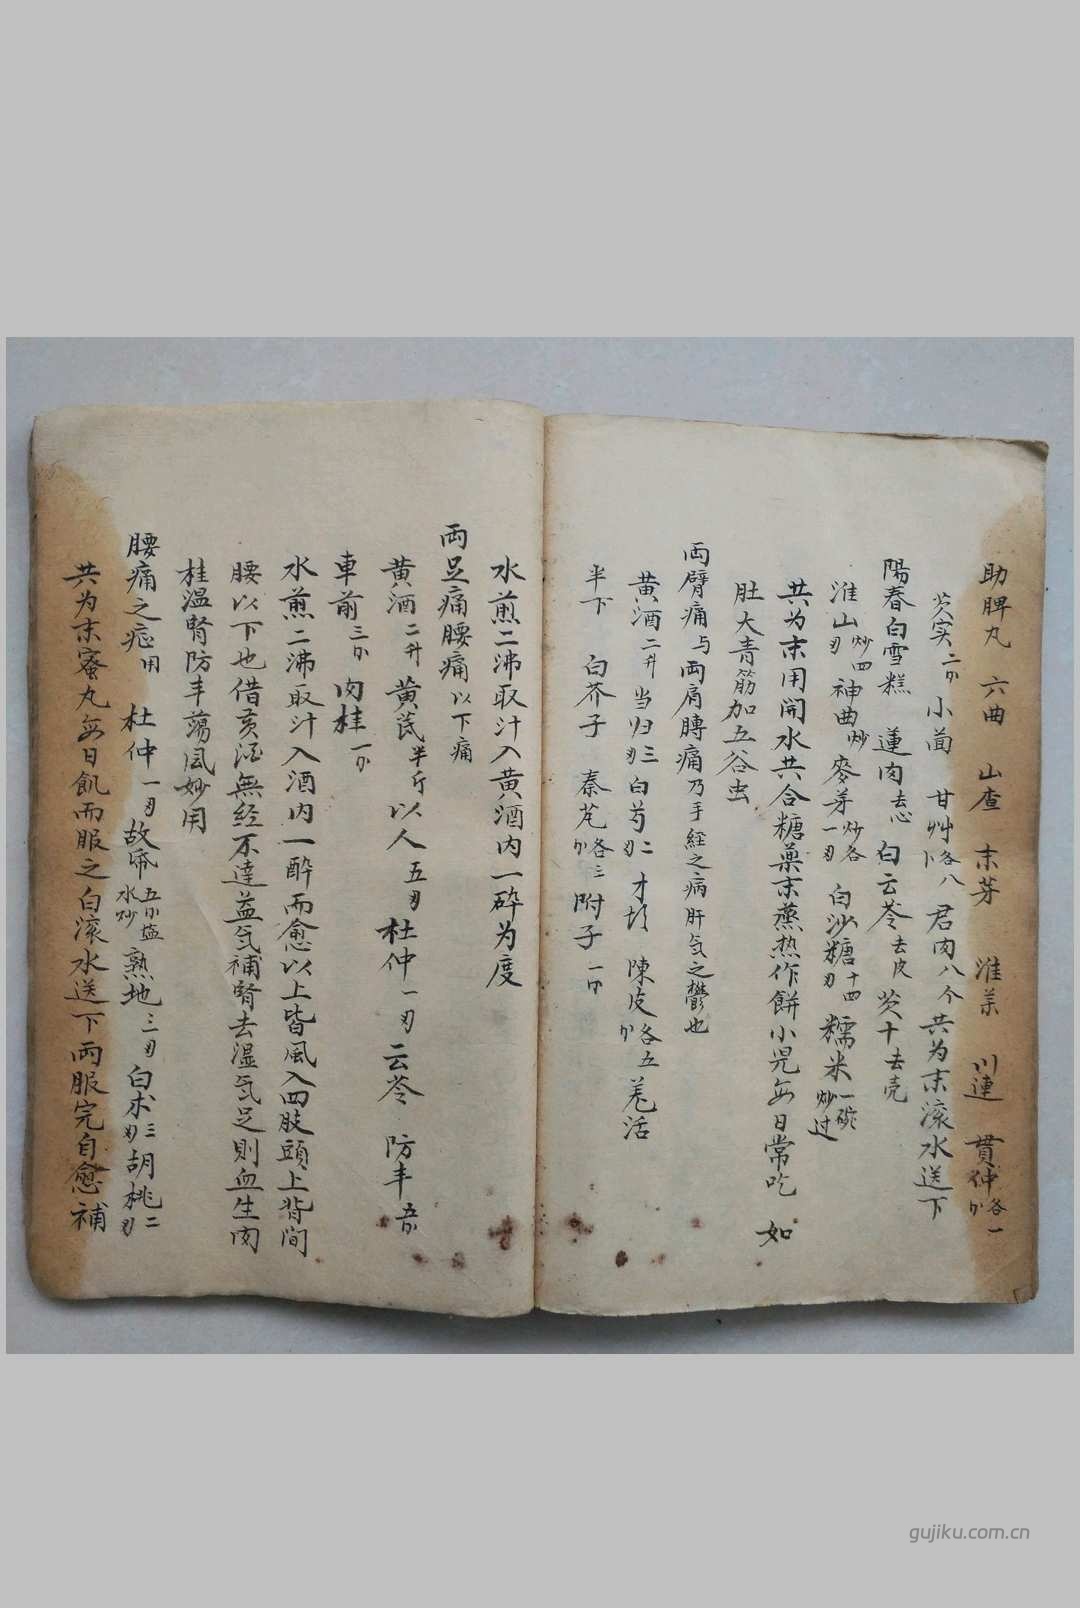 助脾丸 六曲 山查 末芽 淮美 川連 貫仲各一
芡实二 小茴 甘艸各八 君肉八个 共为末滚水送下
陽春白雪糕 蓮肉去心 白云苓去皮 芡十去壳
淮山炒四刄 神曲炒 麥芽炒各一刄 白沙糖十四刄 糯米一碗炒过
共为末用開水共合糖藥末蒸热作餅小児每日常吃 如
肚大青筋加五谷虫
両臂痛与両肩膊痛乃手経之病肝気之鬱也
黄酒二升 当归三刄 白芍二刄 才胡 陳皮各五 羌活
半下 白芥子 秦艽各三 附子一
水煎二沸取汁入黄酒内一碎为度
両足痛腰痛以下痛
黄酒二升 黄芪半斤 以人五刄 杜仲一刄 云苓 防丰
車前三 肉桂一
水煎二沸取汁入酒内一醉而愈以上皆風入四肢頭上背间
腰以下也借黄酒無经不達益気補腎去湿気足則血生肉
桂温腎防丰蕩風妙用
腰痛之症用 杜仲一刄 故帋五塩水炒 熟地三刄 白术三刄 胡桃二刄
共为末蜜丸每日飢而服之白滚水送下両服完自愈補
gujiku.com.cn